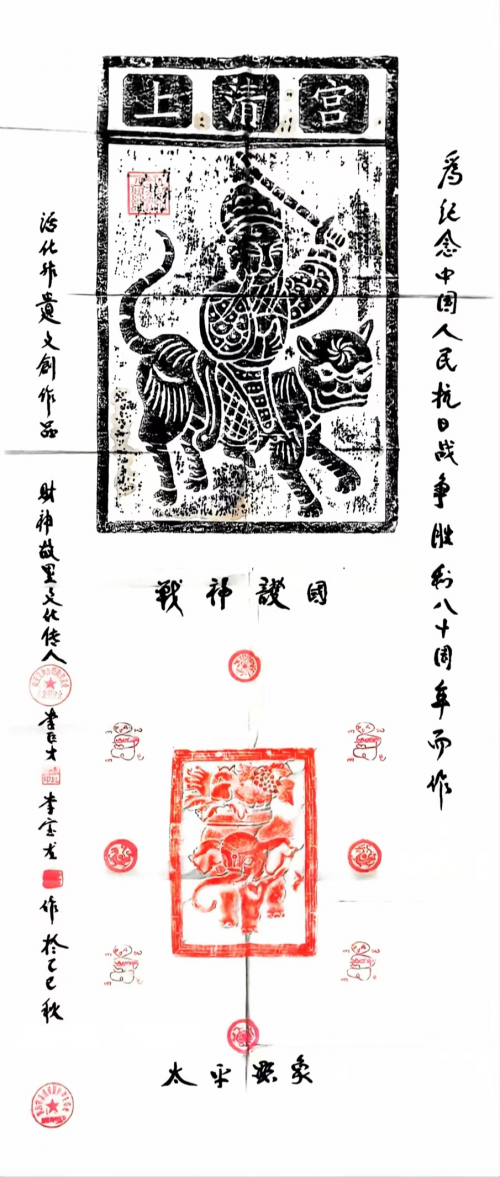 上清宫
為纪念中国人民抗日战争胜利八十周年而作
戰神護国
太平顯象
活化非遺文創作品 財神故里文化传人 李 李 作於乙巳秋